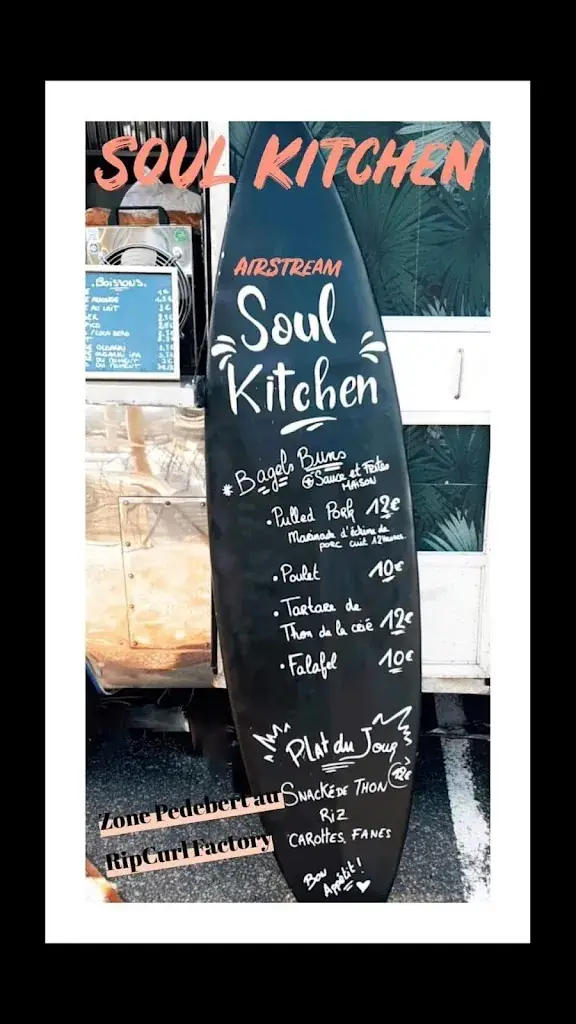 SOUL KITCHEN
AIRSTREAM
Soul
Kitchen
* Bagels Buns
⊕ Sauce et Frites
MAISON
• Pulled Pork 12€
Marinade d'échine de
porc cuit 12 heures
• Poulet 10€
• Tartare de
Thon de la criée 12€
• Falafel 10€
Plat du Jour
12€
SNACKÉ DE THON
RIZ
CAROTTES, FANES
Bon
Appétit!
Zone Pedebert au
RipCurl Factory
.BOISSONS.